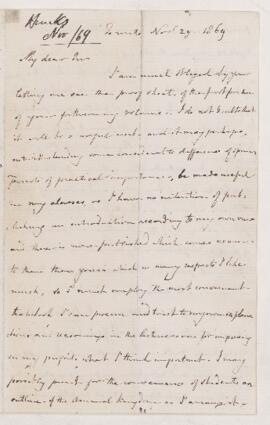 Hincks
Nov/69
Toronto Nov. 29 1869
My dear Sir
I am much obliged by your
letting me see the proof sheets of the first part
of your forthcoming volume. I do not doubt that
it will be a useful work and it may perhaps,
notwithstanding some considerable difference of opinion
points of practical importance, be made useful
in my classes, as I have no intention of pub-
lishing an introduction according to my own views
and there is none published which comes nearer
to them than yours which in many respects I like
much, so I must employ the most convenient
textbook I can procure and trust to my own explana-
tions and reasonings in the lecture room for impressing
on my pupils what I think important. I may
possibly print for the convenience of students an
outline of the Animal Kingdom as I arrange it